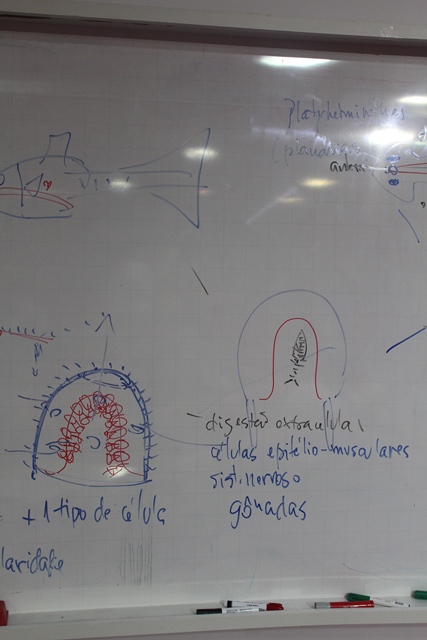 Platyhelminthes
(planárias)
- digestão extracelular
células epitélio-musculares
sist. nervoso
gônadas
+ 1 tipo de célula
laridade